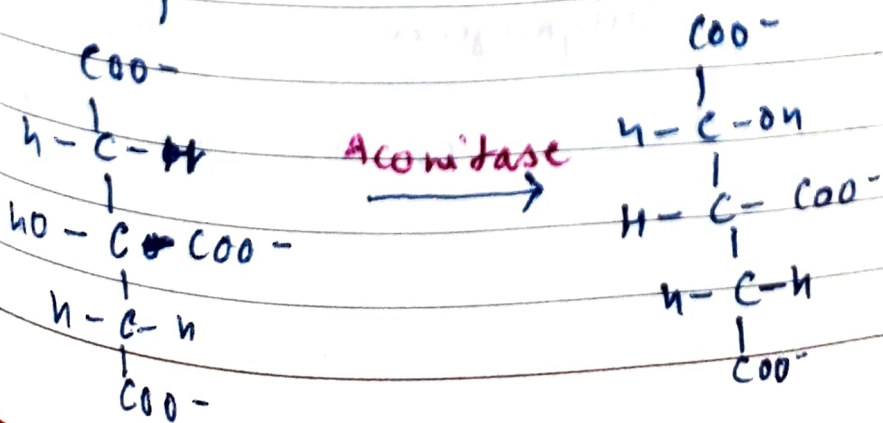 COO-
H-C-H
HO-C-COO-
H-C-H
COO-
Aconitase
COO-
H-C-OH
H-C-COO-
H-C-H
COO-